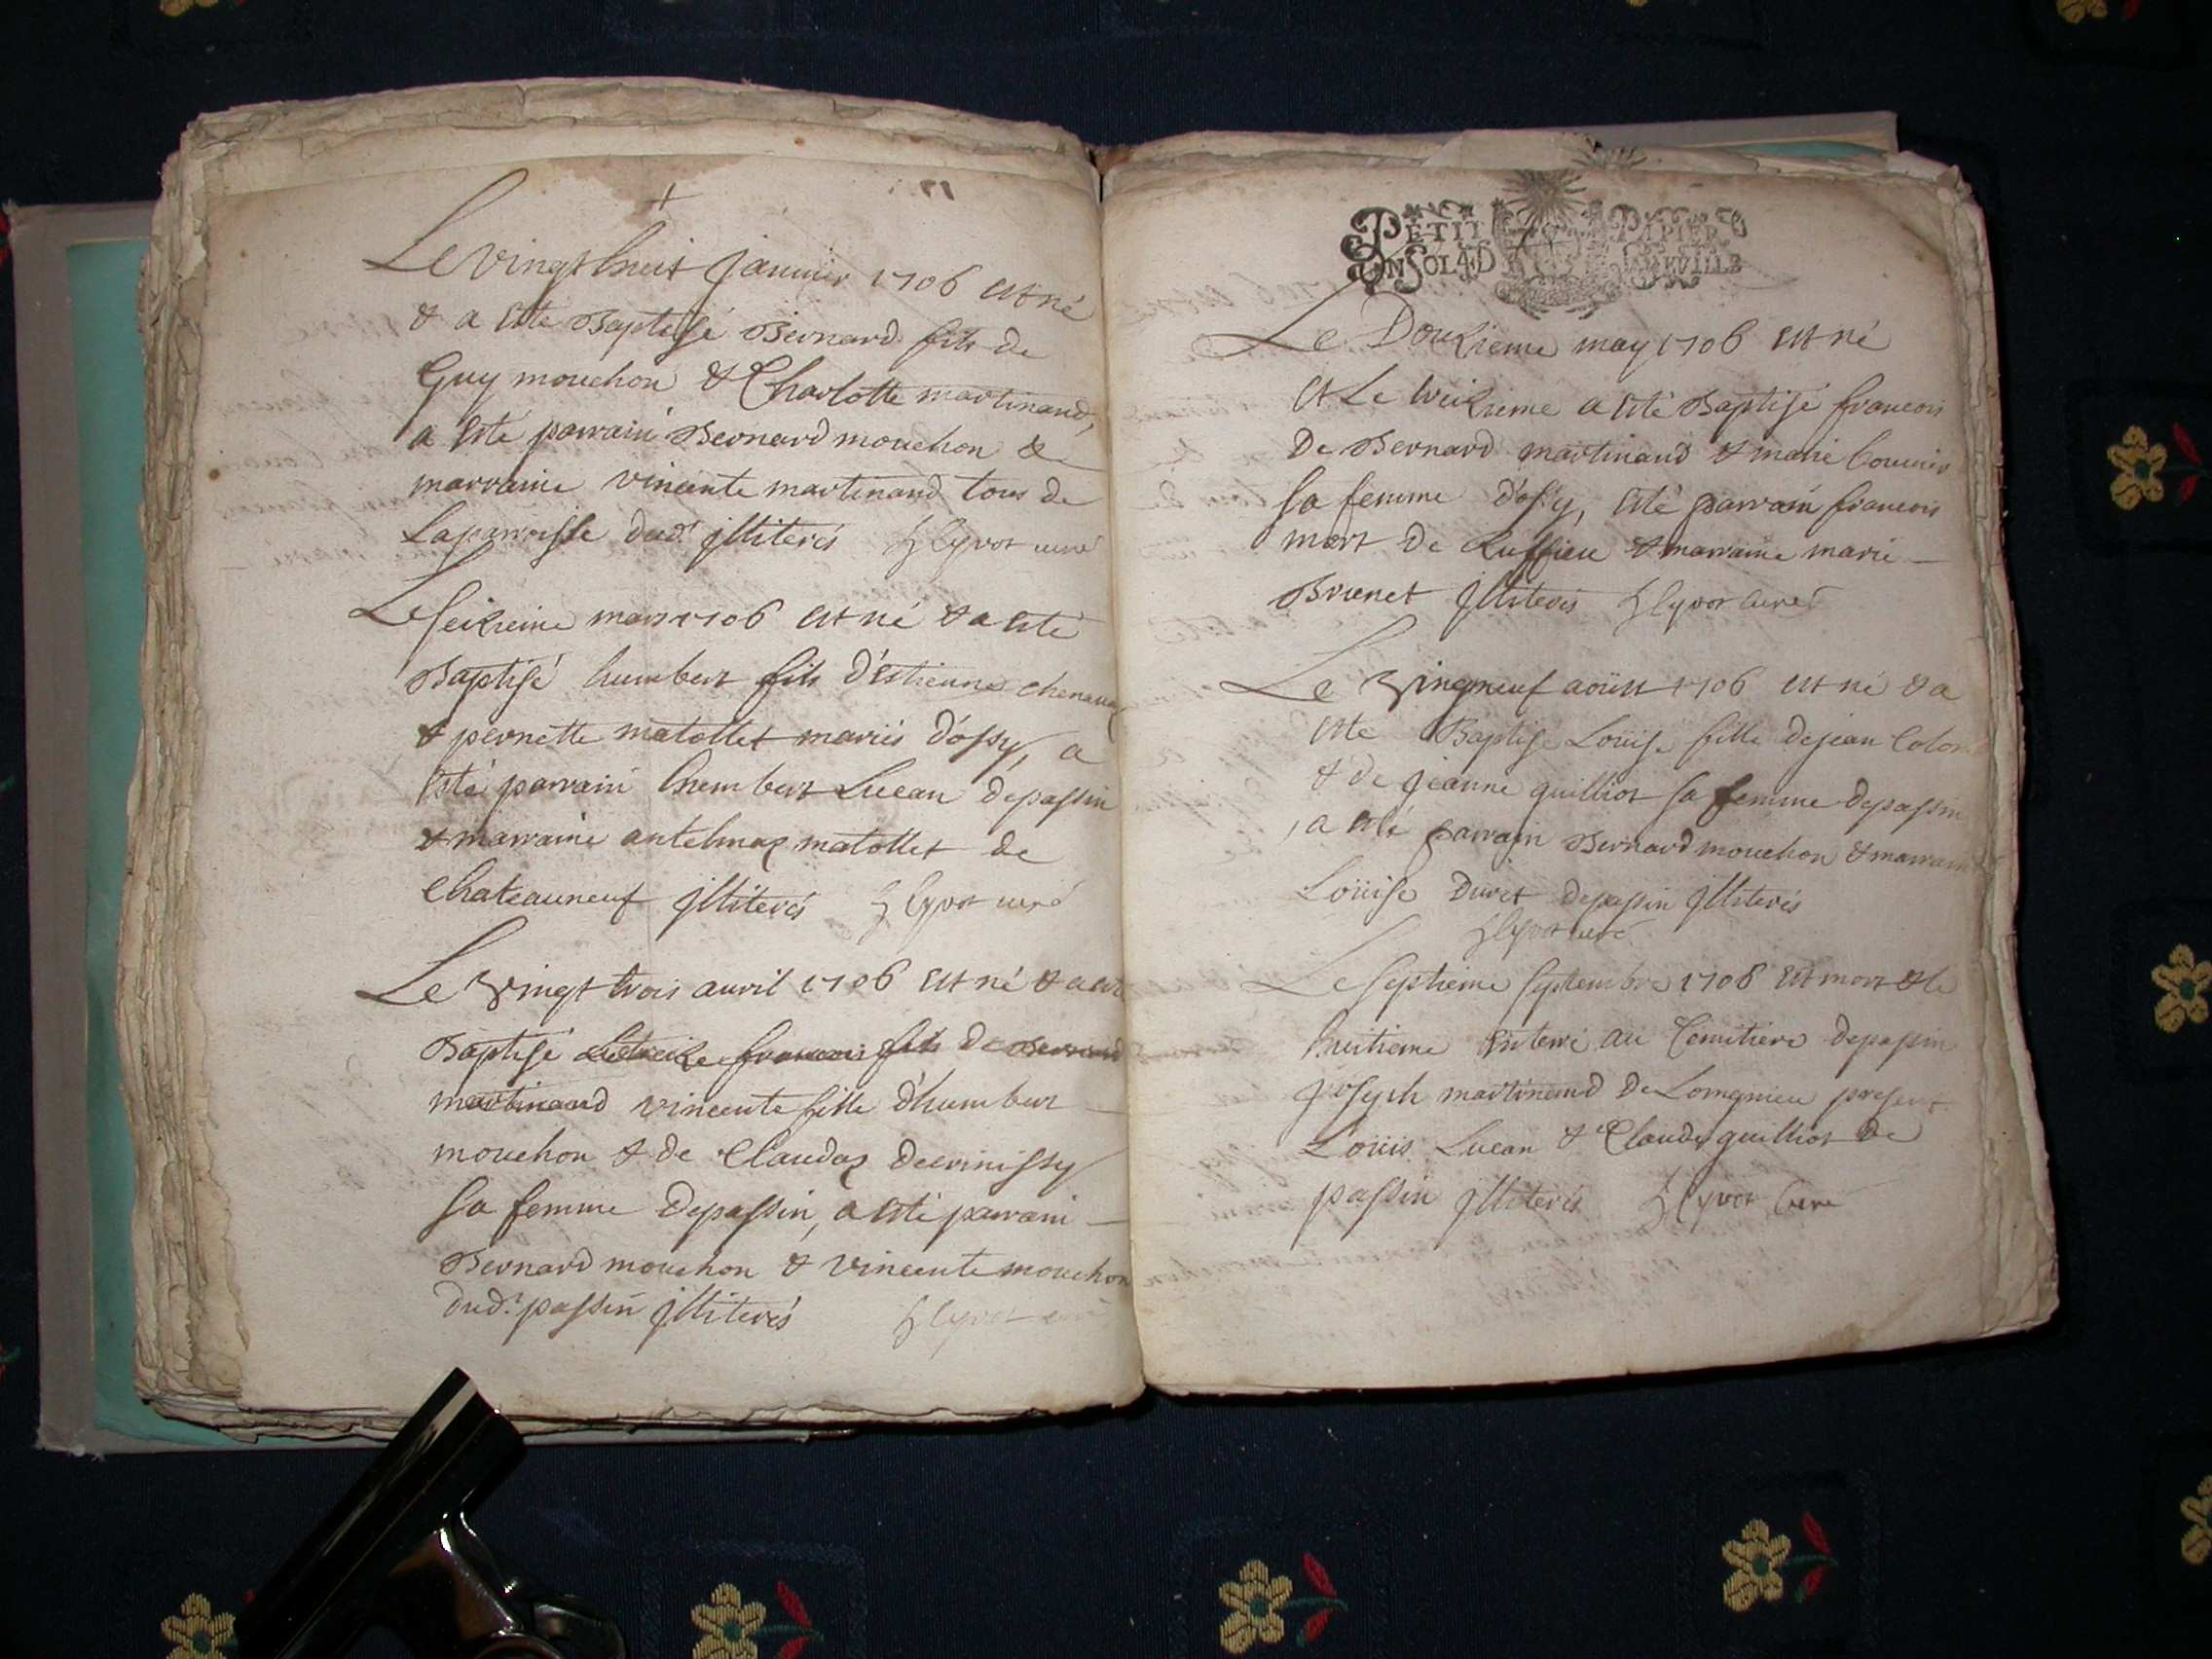 Le vingt huit janvier 1706 est né
& a esté Baptisé Bernard fils de
Guy mouchon & Charlotte martinand,
a esté parrain Bernard mouchon &
marraine vincente martinand tous de
Laparroisse dud.t jlliterés Hlyvot curé
Le seizieme mars 1706 est né & a esté
Baptisé humbert fils d'éstienne
& pernette matollet mariés d'óssy, a
esté parrain humbert Lucan depassin
& marraine antelmaz matollet de
Chateauneuf jlliterés Hlyvot curé
Le Vingt trois auril 1706 est né & a esté
Baptisé francois fils de Bernard
martinand vincente fille d'humbert
mouchon & de Claudaz decrinissy
sa femme Depassin, a esté parrain
Bernard mouchon & vincente mouchon
dud.t passin jlliterés Hlyvot curé
PETIT PAPIER
UN SOL 4.D LA FEUILLE
Le Douzieme may 1706 est né
et Le treizieme a esté Baptisé francois
De Bernard martinand & marie
sa femme d'óssy, esté parrain francois
mort De Luffieu & marraine marie
Brunet jlliterés Hlyvot curé
Le Vingneuf aoüst 1706 est né & a
esté Baptisé Loüise fille dejean
& de jeanne guilliot sa femme depassin
, a esté parrain Bernard mouchon & marraine
Loüise Duret depassin jlliterés
Hlyvot curé
Le septieme septembre 1706 est mort & le
huitieme enterré au Cemitiere depassin
joseph martinand De Longnieu present
Loüis Lucan & Claude guilliot de
passin jlliterés Hlyvot Curé